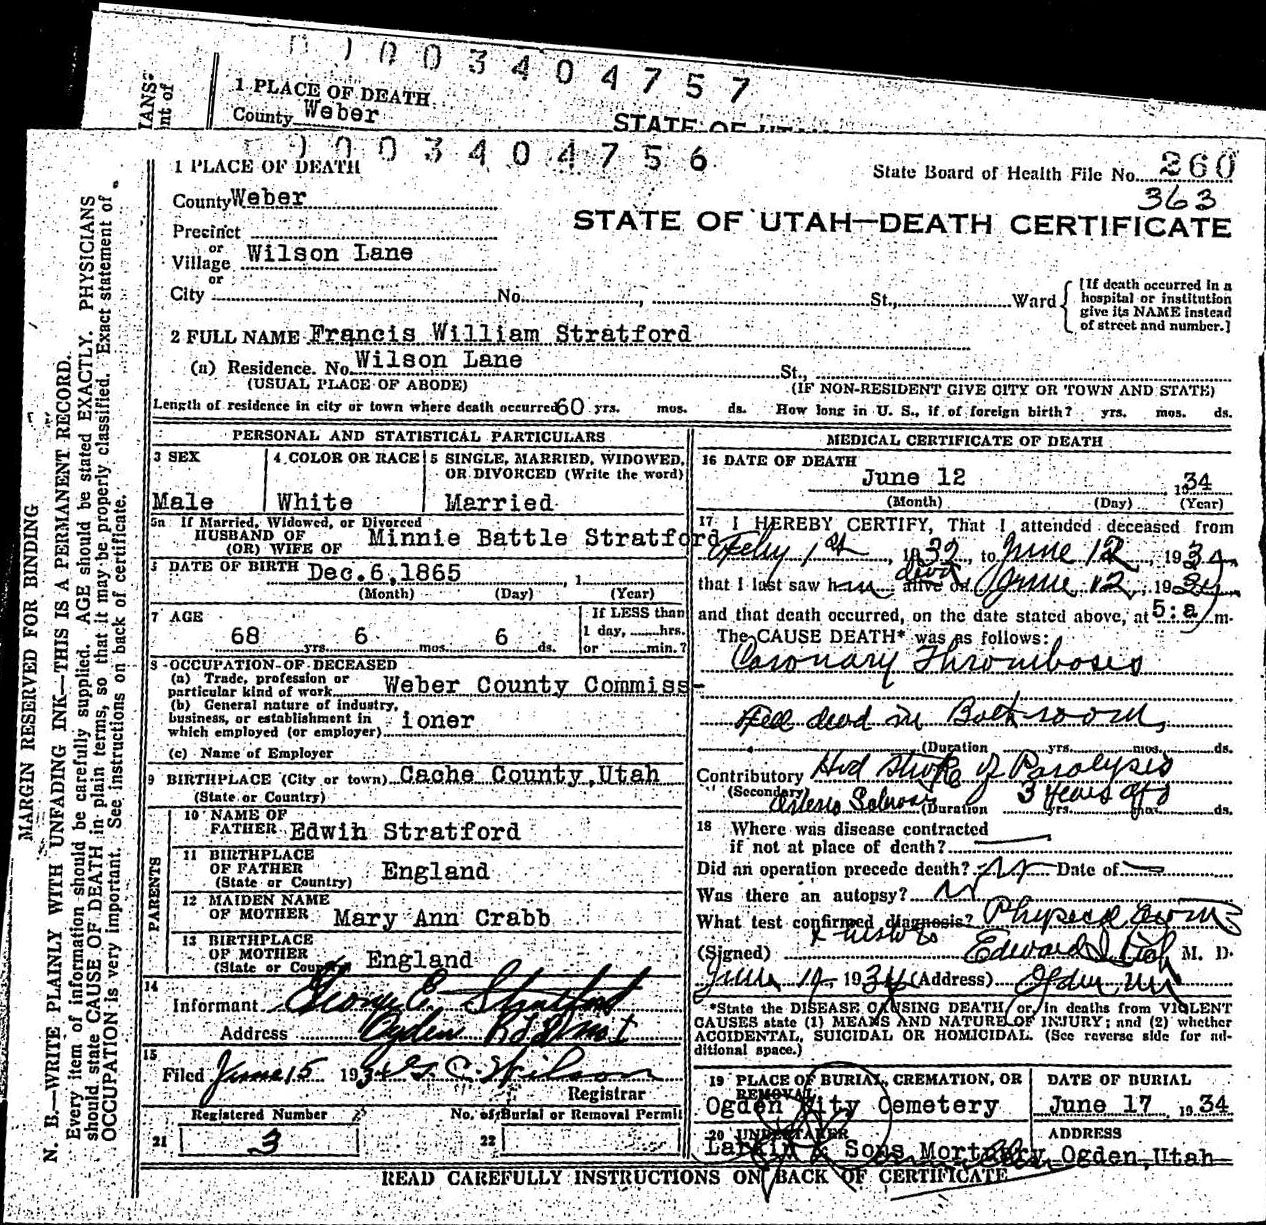 0 0 0 3 4 0 4 7 5 7
1 PLACE OF DEATH
County Weber
STATE OF UTAH
TANS-
nt of
0 0 3 4 0 4 7 5 6
1 PLACE OF DEATH
State Board of Health File No. 260
363
County Weber
STATE OF UTAH—DEATH CERTIFICATE
Precinct
or
Village Wilson Lane
or
City No. , St., Ward
[If death occurred in a
hospital or institution
give its NAME instead
of street and number.]
2 FULL NAME Francis William Stratford
(a) Residence. No. Wilson Lane St.,
(USUAL PLACE OF ABODE) (IF NON-RESIDENT GIVE CITY OR TOWN AND STATE)
Length of residence in city or town where death occurred 60 yrs. mos. ds. How long in U. S., if of foreign birth? yrs. mos. ds.
PERSONAL AND STATISTICAL PARTICULARS
3 SEX
Male
4 COLOR OR RACE
White
5 SINGLE, MARRIED, WIDOWED,
OR DIVORCED (Write the word)
Married
5a If Married, Widowed, or Divorced
HUSBAND OF
(OR) WIFE OF Minnie Battle Stratford
DATE OF BIRTH Dec. 6, 1865 , 1
(Month) (Day) (Year)
7 AGE
68 yrs. 6 mos. 6 ds.
If LESS than
1 day, hrs.
or min.?
8 OCCUPATION OF DECEASED
(a) Trade, profession or
particular kind of work Weber County Commiss-
(b) General nature of industry,
business, or establishment in
which employed (or employer) ioner
(c) Name of Employer
9 BIRTHPLACE (City or town) Cache County, Utah
(State or Country)
PARENTS
10 NAME OF
FATHER Edwin Stratford
11 BIRTHPLACE
OF FATHER
(State or Country) England
12 MAIDEN NAME
OF MOTHER Mary Ann Crabb
13 BIRTHPLACE
OF MOTHER
(State or Country) England
14
Informant George E. Stratford
Address Ogden
15
Filed June 15 1934 G. C. Wilson
Registrar
Registered Number
21 3
No. of Burial or Removal Permit
22
MEDICAL CERTIFICATE OF DEATH
16 DATE OF DEATH
June 12 , 1934
(Month) (Day) (Year)
17 I HEREBY CERTIFY, That I attended deceased from
Feby 1st, 1932 to June 12, 1934,
that I last saw him alive on dead June 12, 1934,
and that death occurred, on the date stated above, at 5: a m.
The CAUSE DEATH* was as follows:
Coronary Thrombosis
Fell dead in Bathroom,
(Duration yrs. mos. ds.
Contributory Had Stroke of Paralysis
(Secondary) Arterio Sclerosis (Duration 3 years ago yrs. mos. ds.
18 Where was disease contracted
if not at place of death?
Did an operation precede death? Date of
Was there an autopsy? No
What test confirmed diagnosis? Physical Exam
& history
(Signed) Edward I. Rich M. D.
June 14 1934 (Address) Ogden
*State the DISEASE CAUSING DEATH, or, in deaths from VIOLENT
CAUSES state (1) MEANS AND NATURE OF INJURY; and (2) whether
ACCIDENTAL, SUICIDAL OR HOMICIDAL. (See reverse side for ad-
ditional space.)
19 PLACE OF BURIAL, CREMATION, OR
REMOVAL
Ogden City Cemetery
DATE OF BURIAL
June 17 , 1934
20 UNDERTAKER
Larkin & Sons Mortuary
ADDRESS
Ogden, Utah
READ CAREFULLY INSTRUCTIONS ON BACK OF CERTIFICATE
MARGIN RESERVED FOR BINDING
N. B.—WRITE PLAINLY WITH UNFADING INK—THIS IS A PERMANENT RECORD.
Every item of information should be carefully supplied. AGE should be stated EXACTLY. PHYSICIANS
should state CAUSE OF DEATH in plain terms, so that it may be properly classified. Exact statement of
OCCUPATION is very important. See instructions on back of certificate.